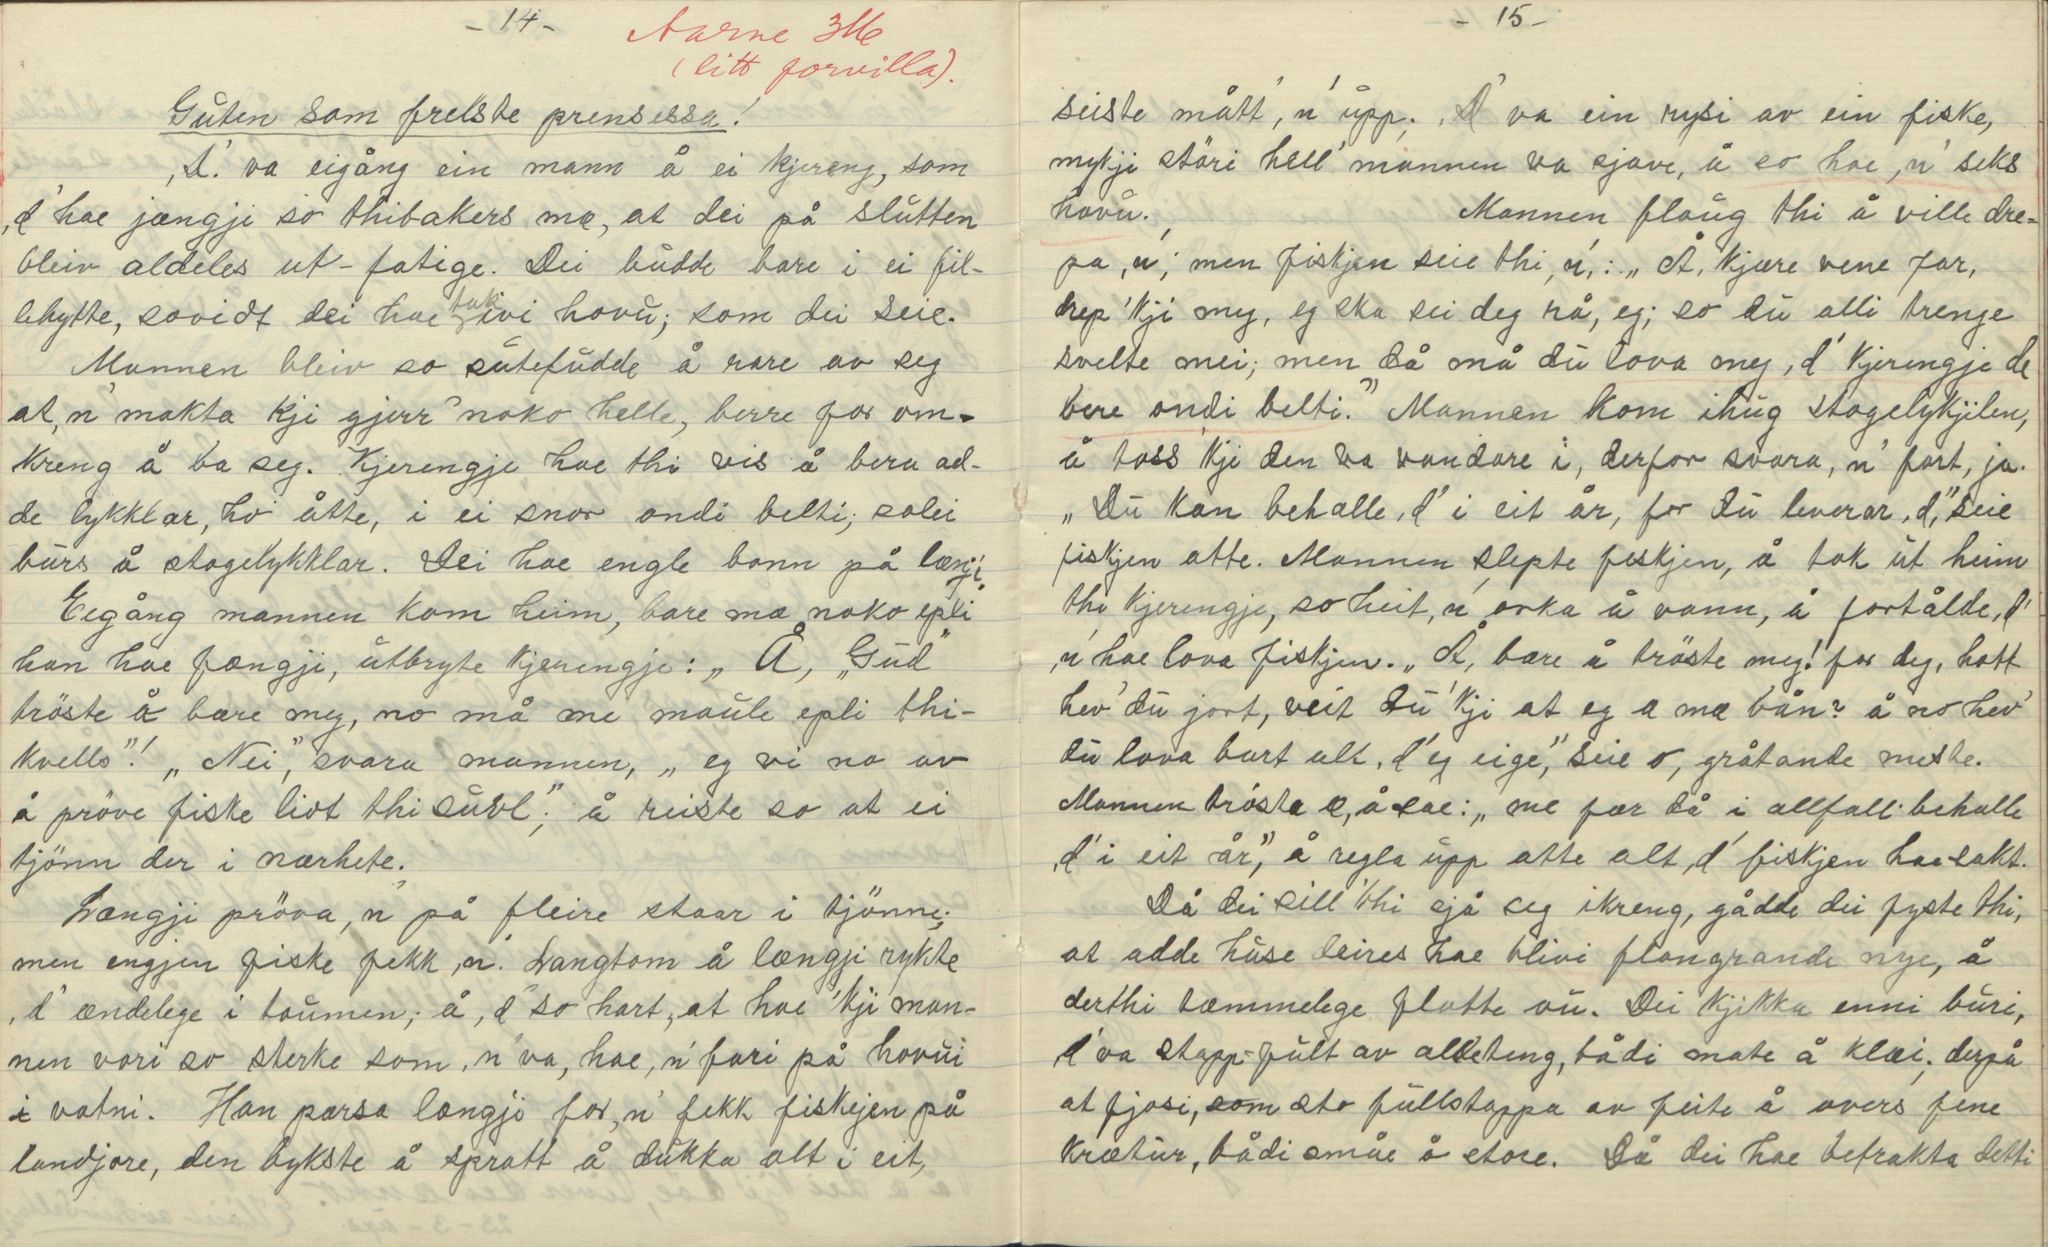 - 14 -
Aarne 316
(litt forvilla).
Gūten som frelste prensessa!
,D'. va eigång ein mann å ei kjereng, som
,d' hae jængji so thibakers mæ, at dei på slūtten
bleiv aldeles ut-fatige. Dei būdde bare i ei fil-
lehytte, sovidt dei hae tak ivi hovū; som dei seie.
Mannen bleiv so sūtefūdde å rare av seg
at, n' makta kji gjerr' noko helle, berre for om-
kreng å ba seg. Kjerengje hae thi vis å bera ad-
de lykklar, ho åtte, i ei snor ondi belti; solei
būrs å stogelykklar. Dei hae engle bonn på længji.
Eigång mannen kom heim, bare mæ noko epli
han hae fængji, ūtbryte kjerengje: „ Å, „Gūd"
tröste å bære meg, no må me maūle epli thi-
kvells"! „ Nei", svara mannen, „ eg vi no av
å pröve fiske lidt thi sūvl"; å reiste so at ei
tjönn der i nærhete.
Længji pröva, n' på fleire staar i tjönne;
men engjen fiske fekk, n'. Langtom å længji rykte
, d' ændelege i toūmen; å, d' so hart, at hae 'kji man-
nen vori so sterke som, n' va, hae, n' fari på hovūi
i vatni. Han pærsa længji for, n' fekk fiskjen på
landjore, den bykste å spratt å dūkka alt i eit,
- 15 -
seiste mått', n' ūpp; ,D' va ein rysi av ein fiske,
mykji störi hell' mannen va sjave, å so hae, n' seks
hovū. Mannen flaūg thi å ville dre-
pa, n'; men fiskjen seie thi, n',: „ Å, kjære vene far,
drep 'kji meg, eg ska sei deg rå, eg; so dū alli trenge
svelte mei; men då må dū lova meg, d' kjerengje de
bere ondi belti." Mannen kom ihūg stogelykjilen,
å toss 'kji den va vandare i, derfor svara, n' fort, ja.
„ Dū kan behalle, d' i eit år, for dū leverar, d'," seie
fiskjen atte. Mannen slepte feskjen, å tok ūt heim
thi kjerengje, so heit, n' orka å vann, å fortålde, d'
, n' hae lova fiskjen. „ Å, bære å tröste meg! for deg, hott
hev' dū jort, veit dū 'kji at eg æ mæ bån? å no hev'
dū lova burt alt, d' eg eige," seie o, gråtande meste.
Mannen trösta e, å sae: „ me fær då i allfall behalle
, d' i eit år," å regla ūpp atte alt, d' fiskjen hae sakt.
Då dei sill' thi sjå seg ikreng, gådde dei fyste thi,
at adde hūse deires hae blivi flongrande nye, å
derthi tæmmelege flotte ūū. Dei kjikka enni būri,
d' va stapp-fūlt av alleteng, bådi mate å klæi; derpå
at fjosi, som sto fūllstappa av feite å overs fene
krætūr, bådi småe å store. Då dei hae betrakta detti